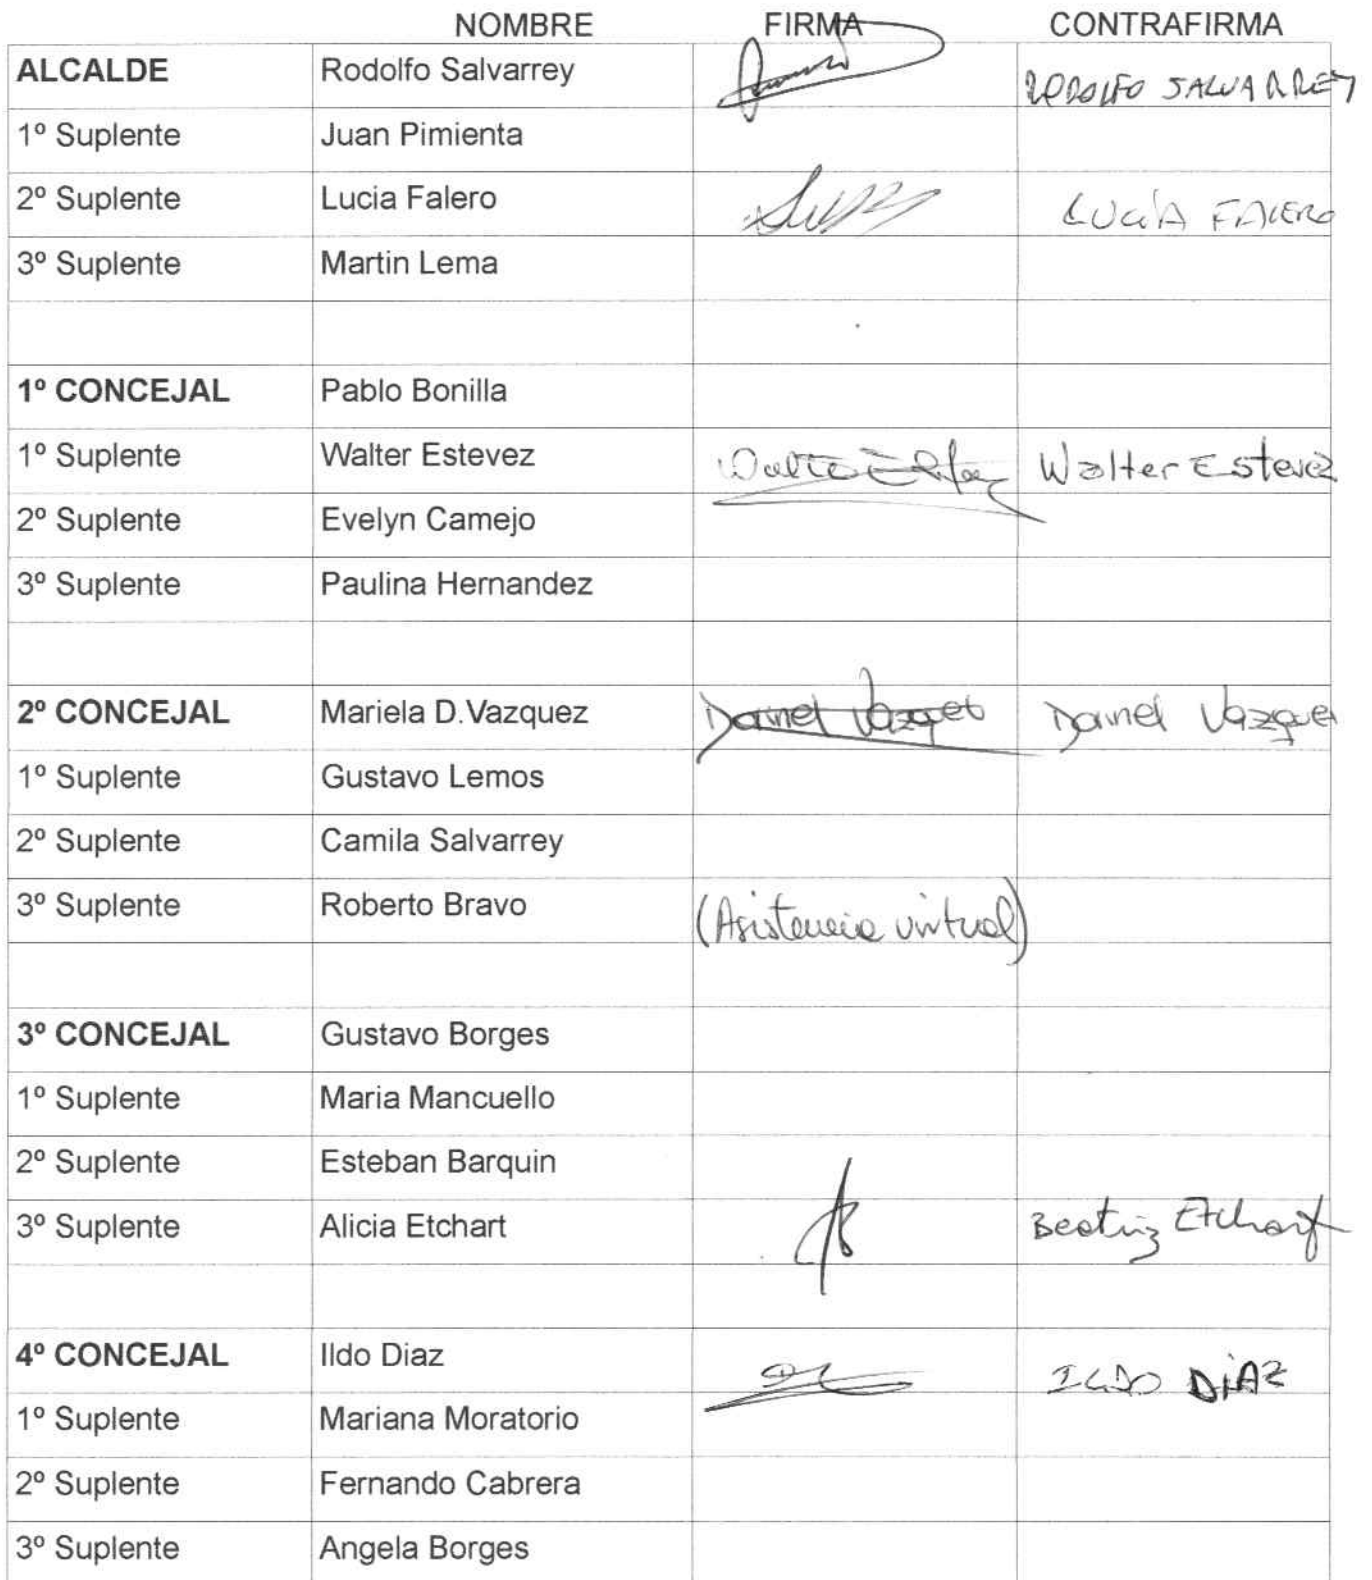 NOMBRE FIRMA CONTRAFIRMA
ALCALDE Rodolfo Salvarrey RODOLFO SALVARREY
1º Suplente Juan Pimienta
2º Suplente Lucia Falero LUCÍA FALERO
3º Suplente Martin Lema
1º CONCEJAL Pablo Bonilla
1º Suplente Walter Estevez Walter Estevez
2º Suplente Evelyn Camejo
3º Suplente Paulina Hernandez
2º CONCEJAL Mariela D.Vazquez Daniel Vazquez Daniel Vazquez
1º Suplente Gustavo Lemos
2º Suplente Camila Salvarrey
3º Suplente Roberto Bravo (Asistencia virtual)
3º CONCEJAL Gustavo Borges
1º Suplente Maria Mancuello
2º Suplente Esteban Barquin
3º Suplente Alicia Etchart Beatriz Etchart
4º CONCEJAL Ildo Diaz ILDO DÍAZ
1º Suplente Mariana Moratorio
2º Suplente Fernando Cabrera
3º Suplente Angela Borges